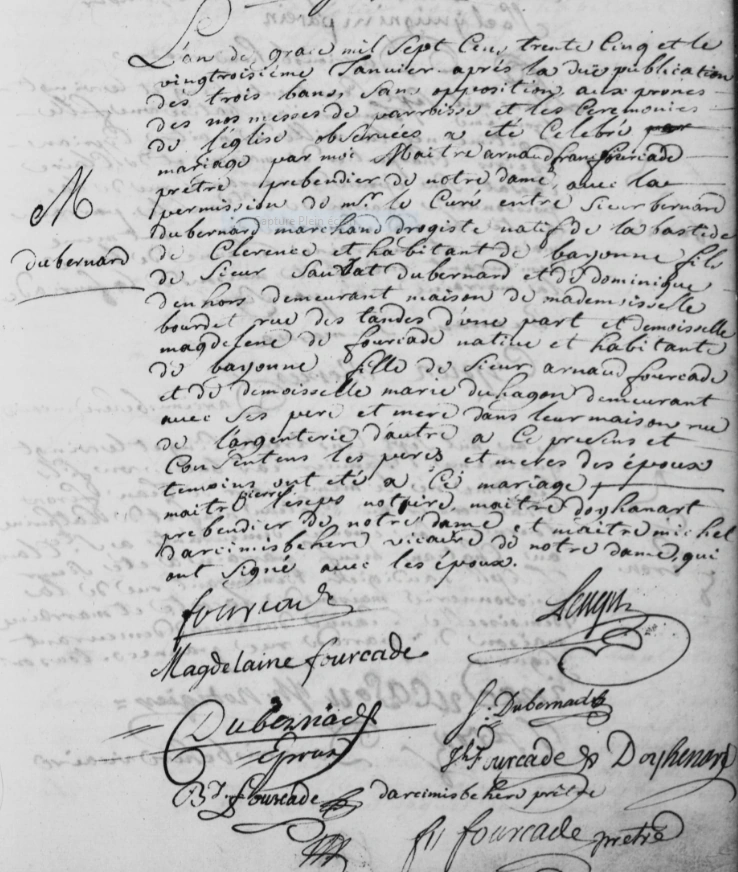 L'an de grace mil sept cens trente cinq et le
vingtroisième Janvier après la due publication
des trois bans sans opposition aux prones
des nos messes de parroisse et les Ceremonies
de l'église observées a eté Celebré
mariage par moi Maitre arnaud franç fourcade
prétre prebendier de notre dame avec la
permission de mr. le Curé entre Sieur bernard
M
dubernard marchand drogiste natif de la bastide
du bernard
de Clerence et habitant de bayonne fils
de Sieur Saubat dubernard et de dominique
denhors demeurant maison de mademoisselle
bourdet rue des tandes d'une part et demoisselle
magdelene de fourcade native et habitante
de bayonne fille de Sieur arnaud fourcade
et de demoisselle marie duhagon demeurant
avec ses pere et mere dans leur maison rue
de l'argenterie d'autre a Ce presens et
Consentens les peres et meres des époux
temoins ont eté a Ce mariage
maitre pierre lesseps notaire maitre doyhanart
prebendier de notre dame et maitre michel
darcimisbehere vicaire de notre dame qui
ont signé avec les époux.
fourcade
Magdelaine fourcade
Dubernad
S. Dubernad
Epoux
fourcade Doyhenard
Bd. fourcade darcimisbehere prétre
fourcade pretre